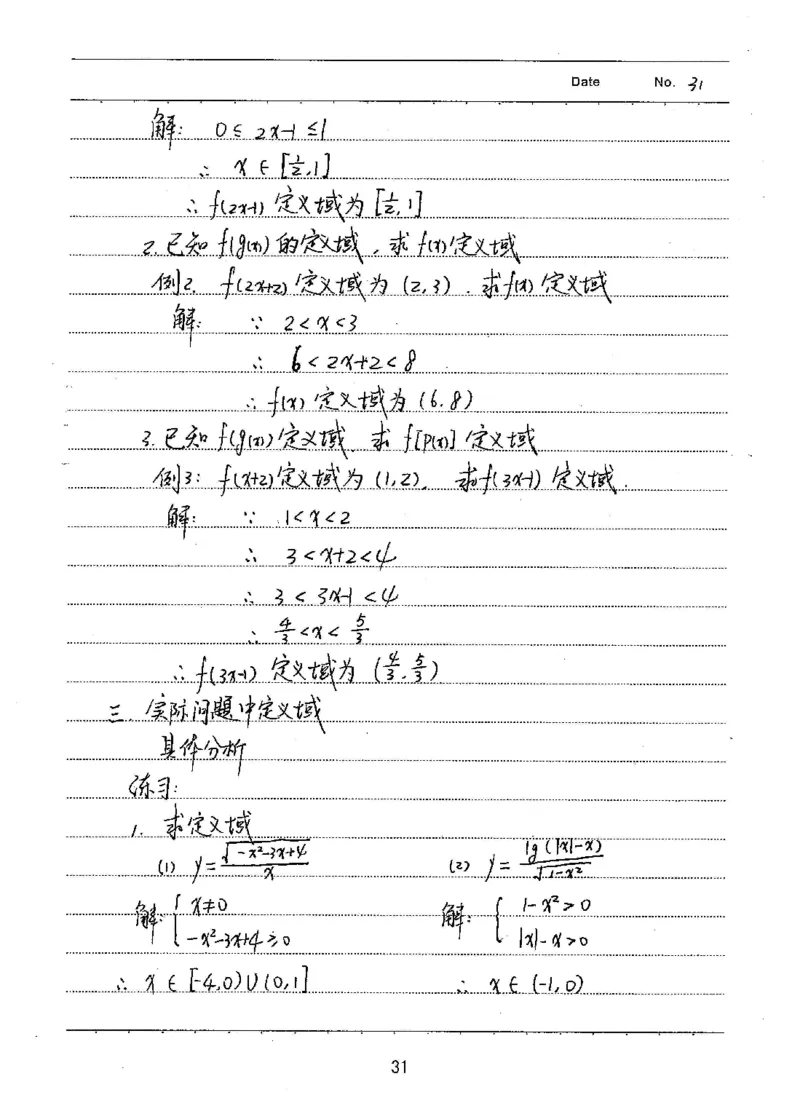 Date No. 31
解: 0≤2x-1≤1
∴ x∈[1/2,1]
∴ f(2x-1)定义域为[1/2,1]
2.已知f(g(x))的定义域,求f(x)定义域
例2. f(2x+2)定义域为(2,3).求f(x)定义域
解: ∵ 2<x<3
∴ 6<2x+2<8
∴ f(x)定义域为(6.8)
3.已知f(g(x))定义域.求f[p(x)]定义域
例3: f(x+2)定义域为(1,2). 求f(3x-1)定义域.
解: ∵ 1<x<2
∴ 3<x+2<4
∴ 3<3x-1<4
∴ 4/3<x<5/3
∴ f(3x-1)定义域为(4/3.5/3)
三.实际问题中定义域
具体分析
练习:
1. 求定义域
(1) y=√(-x²-3x+4)/x (2) y=lg(|x|-x)/√(1-x²)
解: { x≠0 解: { 1-x²>0
-x²-3x+4≥0 |x|-x>0
∴ x∈[-4,0)∪(0,1] ∴ x∈(-1,0)
31